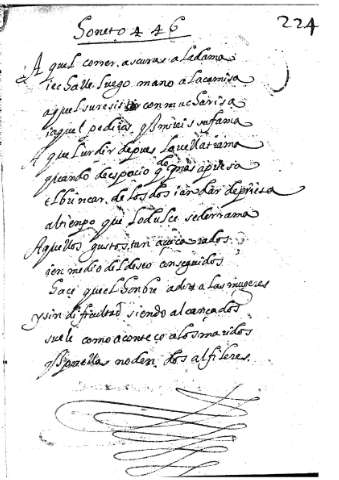 Soneto 446
224
Aquel correr a scuras a la dama
i echalle luego mano a la camisa
aquel su resistir con mucha risa
i aquel pediros q̃ miréis su fama
Aquel urdir despues la
quando despacio quando mas aprisa
el buscar de los dos i andar de prisa
al tiempo que lo dulce se derrama
Aquellos gustos tan açucarados
i en medio del deseo conseguidos
hace quel honbre adore a las mugeres
y sin dificultad siendo alcançados
suele como aconteçe a los maridos
no den dos alfileres